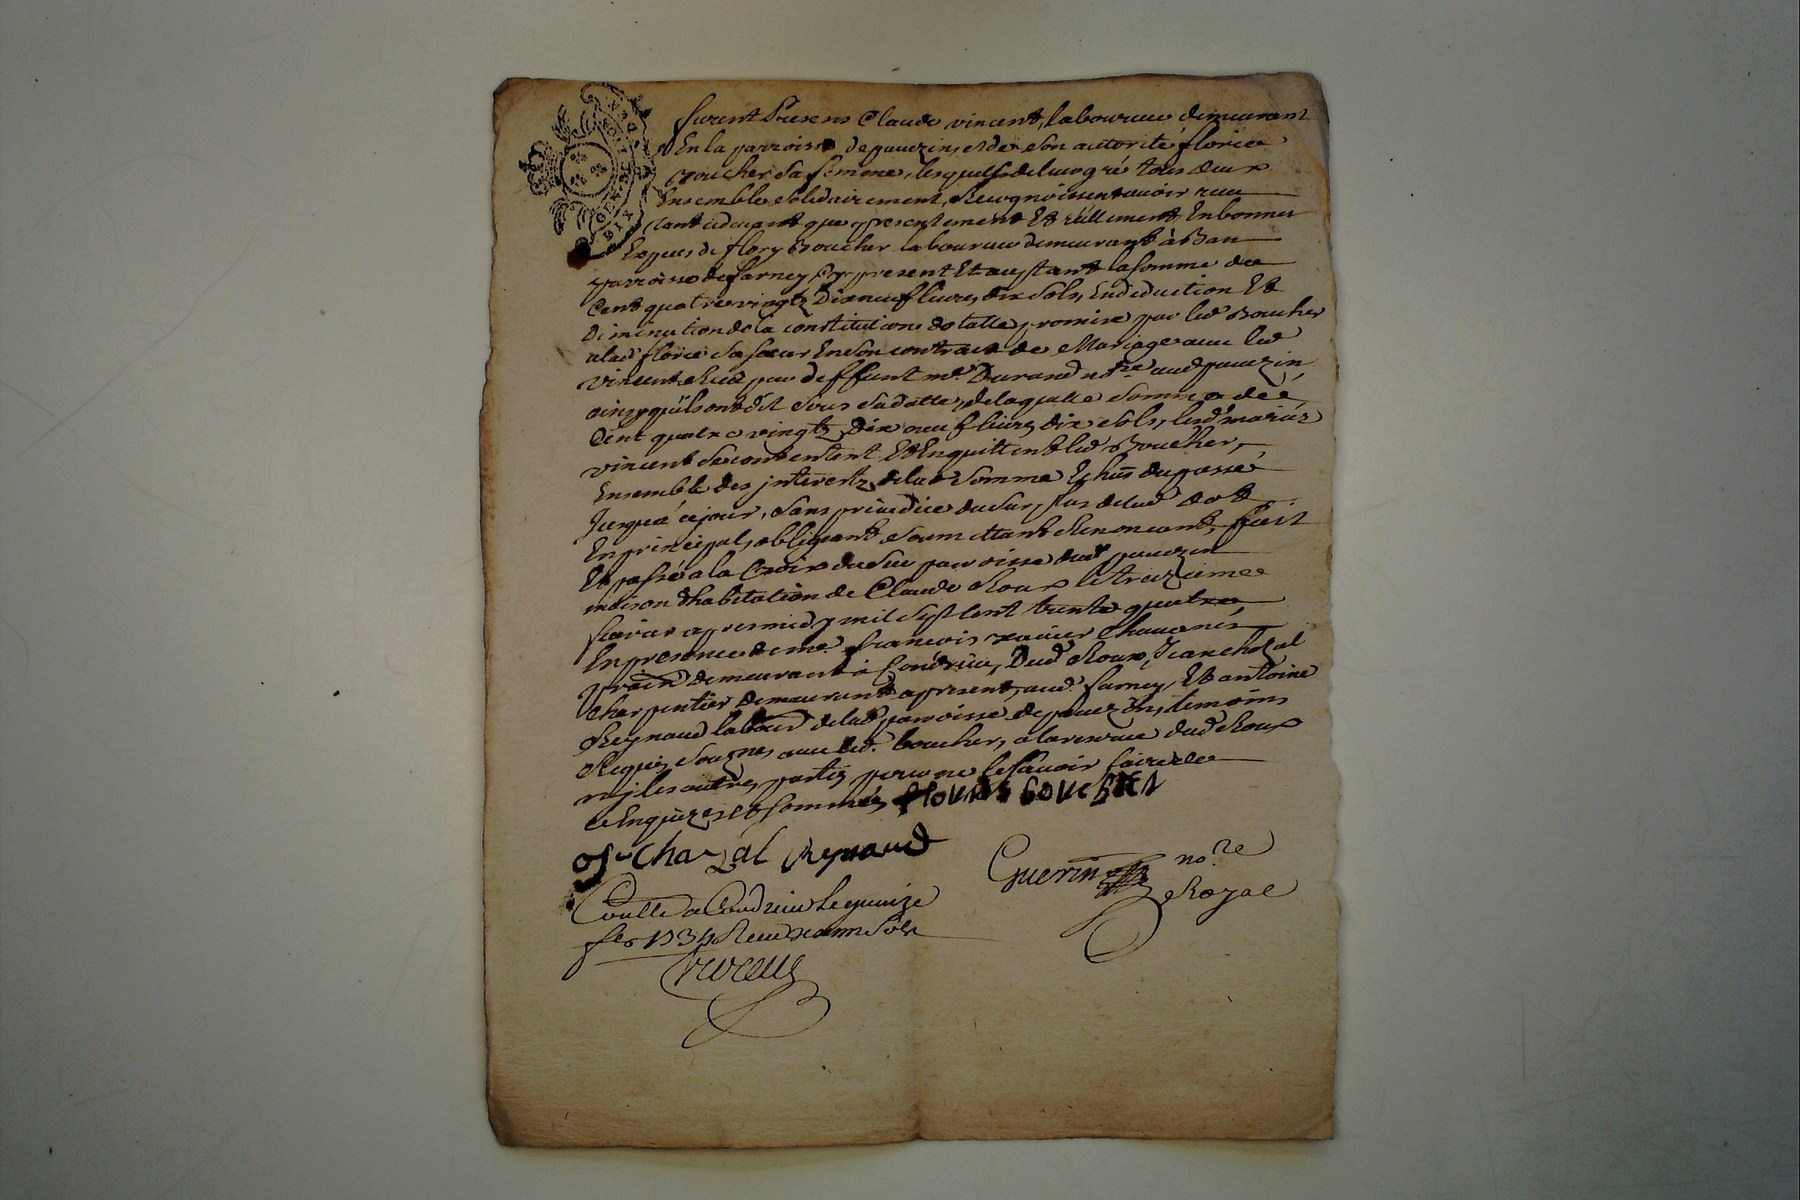 furent Presens Claude vincent, laboureur demeurant
En la parroisse de pavezin, et de son autorité florie
Boucher sa femme, lesquels de leur gré tous deux
Ensemble solidairement, Recognoissent avoir receu
tant cidevant que presentement Et réellement, En bonnes
Especes de flory Boucher laboureur demeurant à Ban
parroisse de farnay Cy present Et acceptant la somme de
Cent quatre vingtz Dix neuf livres, dix sols, En deduction Et
Diminution de la constitution dotalle promise par led Boucher
a lad florie sa sœur En son contract de Mariage avec led
vincent Receu par deffunt me. Durand nore aud pavezin
ainsy quils ont dit sous sa datte, de laquelle somme de
Cent quatre vingtz Dix neuf livres dix sols, lesd mariéz
vincent se contentent Et En quittent led Boucher,
Ensemble des jnterestz de lad somme Echus du passé
Jusqua cejour, sans prejudice du surplus de lad dot
En principal, obligeant soumettant Renoncant, fait
Et passé a la Croix du suc parroisse dud pavezin
maison d'habitation de Claude Roux le treizieme
fevrier apresmidy mil sept cent trente quatre,
En presence de me. francois xavier Chavanis
demeurant à Condrieu, Dud Roux, Jean chazal
Charpentier demeurant apresent aud. farnay, Et antoine
Reynaud labour de lad parroisse de pavezin, temoins
Requis, sougnes avec led. boucher, a la reserve dud Roux
nj les autres parties pour ne le savoir faire de
ce Enquizes et sommées floVRis boVCHER
Chazal Reynaud
Guerin nore
Royal
Conllé a Condrieu le quinze
fer 1734 Receu sols